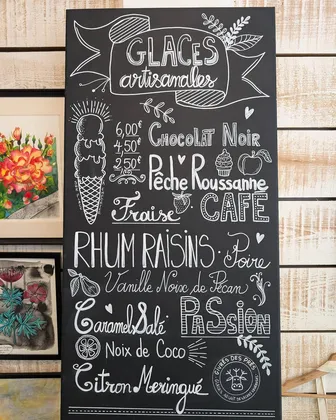 GLACES
artisanales
6,00€
4,50€
2,50€
CHOCOLAT NOIR
Pêche Roussanne
Fraise
CAFÉ
RHUM RAISINS · Poire
Vanille Noix de Pécan
Caramel Salé
PASSION
Noix de Coco
Citron Meringué